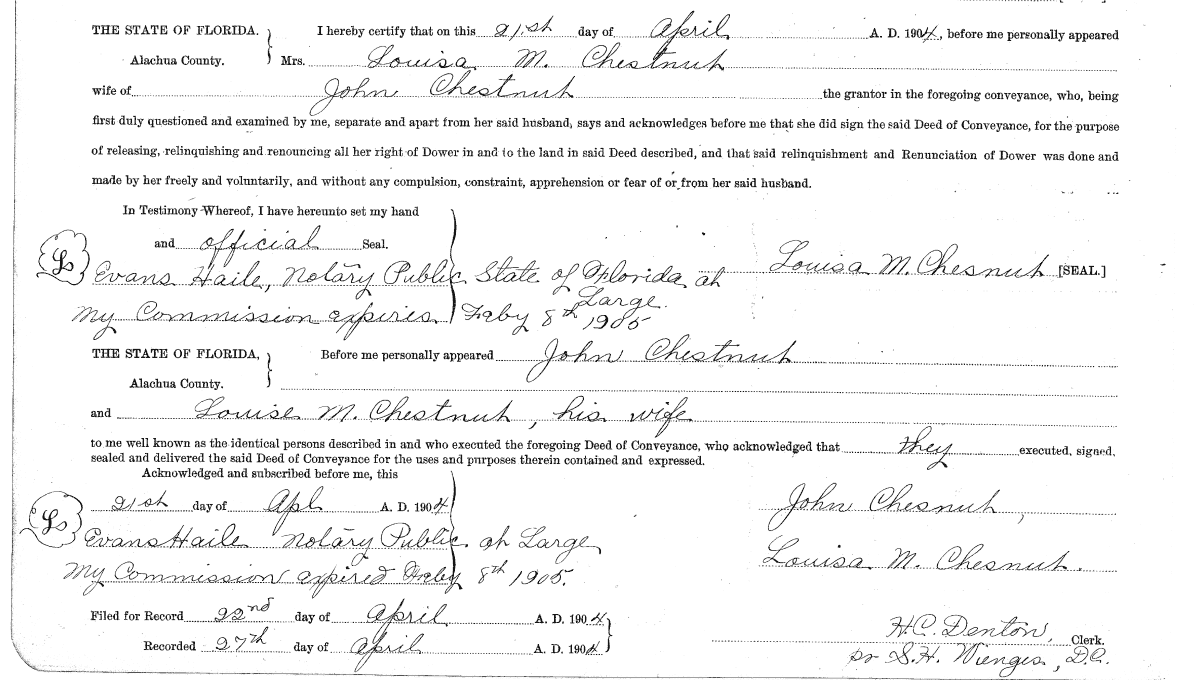 THE STATE OF FLORIDA. I hereby certify that on this 21st day of April A. D. 1904, before me personally appeared
Alachua County. Mrs. Louisa M. Chestnut
wife of John Chestnut the grantor in the foregoing conveyance, who, being
first duly questioned and examined by me, separate and apart from her said husband, says and acknowledges before me that she did sign the said Deed of Conveyance, for the purpose
of releasing, relinquishing and renouncing all her right of Dower in and to the land in said Deed described, and that said relinquishment and Renunciation of Dower was done and
made by her freely and voluntarily, and without any compulsion, constraint, apprehension or fear of or from her said husband.
In Testimony Whereof, I have hereunto set my hand
and official Seal.
Ls Evans Haile, Notary Public State of Florida at Louisa M. Chesnut [SEAL.]
Large.
My Commission expires Feby 8th 1905
THE STATE OF FLORIDA, Before me personally appeared John Chestnut
Alachua County.
and Louise M. Chestnut, his wife
to me well known as the identical persons described in and who executed the foregoing Deed of Conveyance, who acknowledged that they executed, signed,
sealed and delivered the said Deed of Conveyance for the uses and purposes therein contained and expressed.
Acknowledged and subscribed before me, this
21st day of Apl A. D. 1904 John Chesnut,
Ls Evans Haile Notary Public at Large
Louisa M. Chesnut.
My Commission expired Feby 8th 1905.
Filed for Record 22nd day of April A. D. 1904
H.C. Denton, Clerk.
Recorded 27th day of April A. D. 1904
pr S.H. Wienges, D.C.